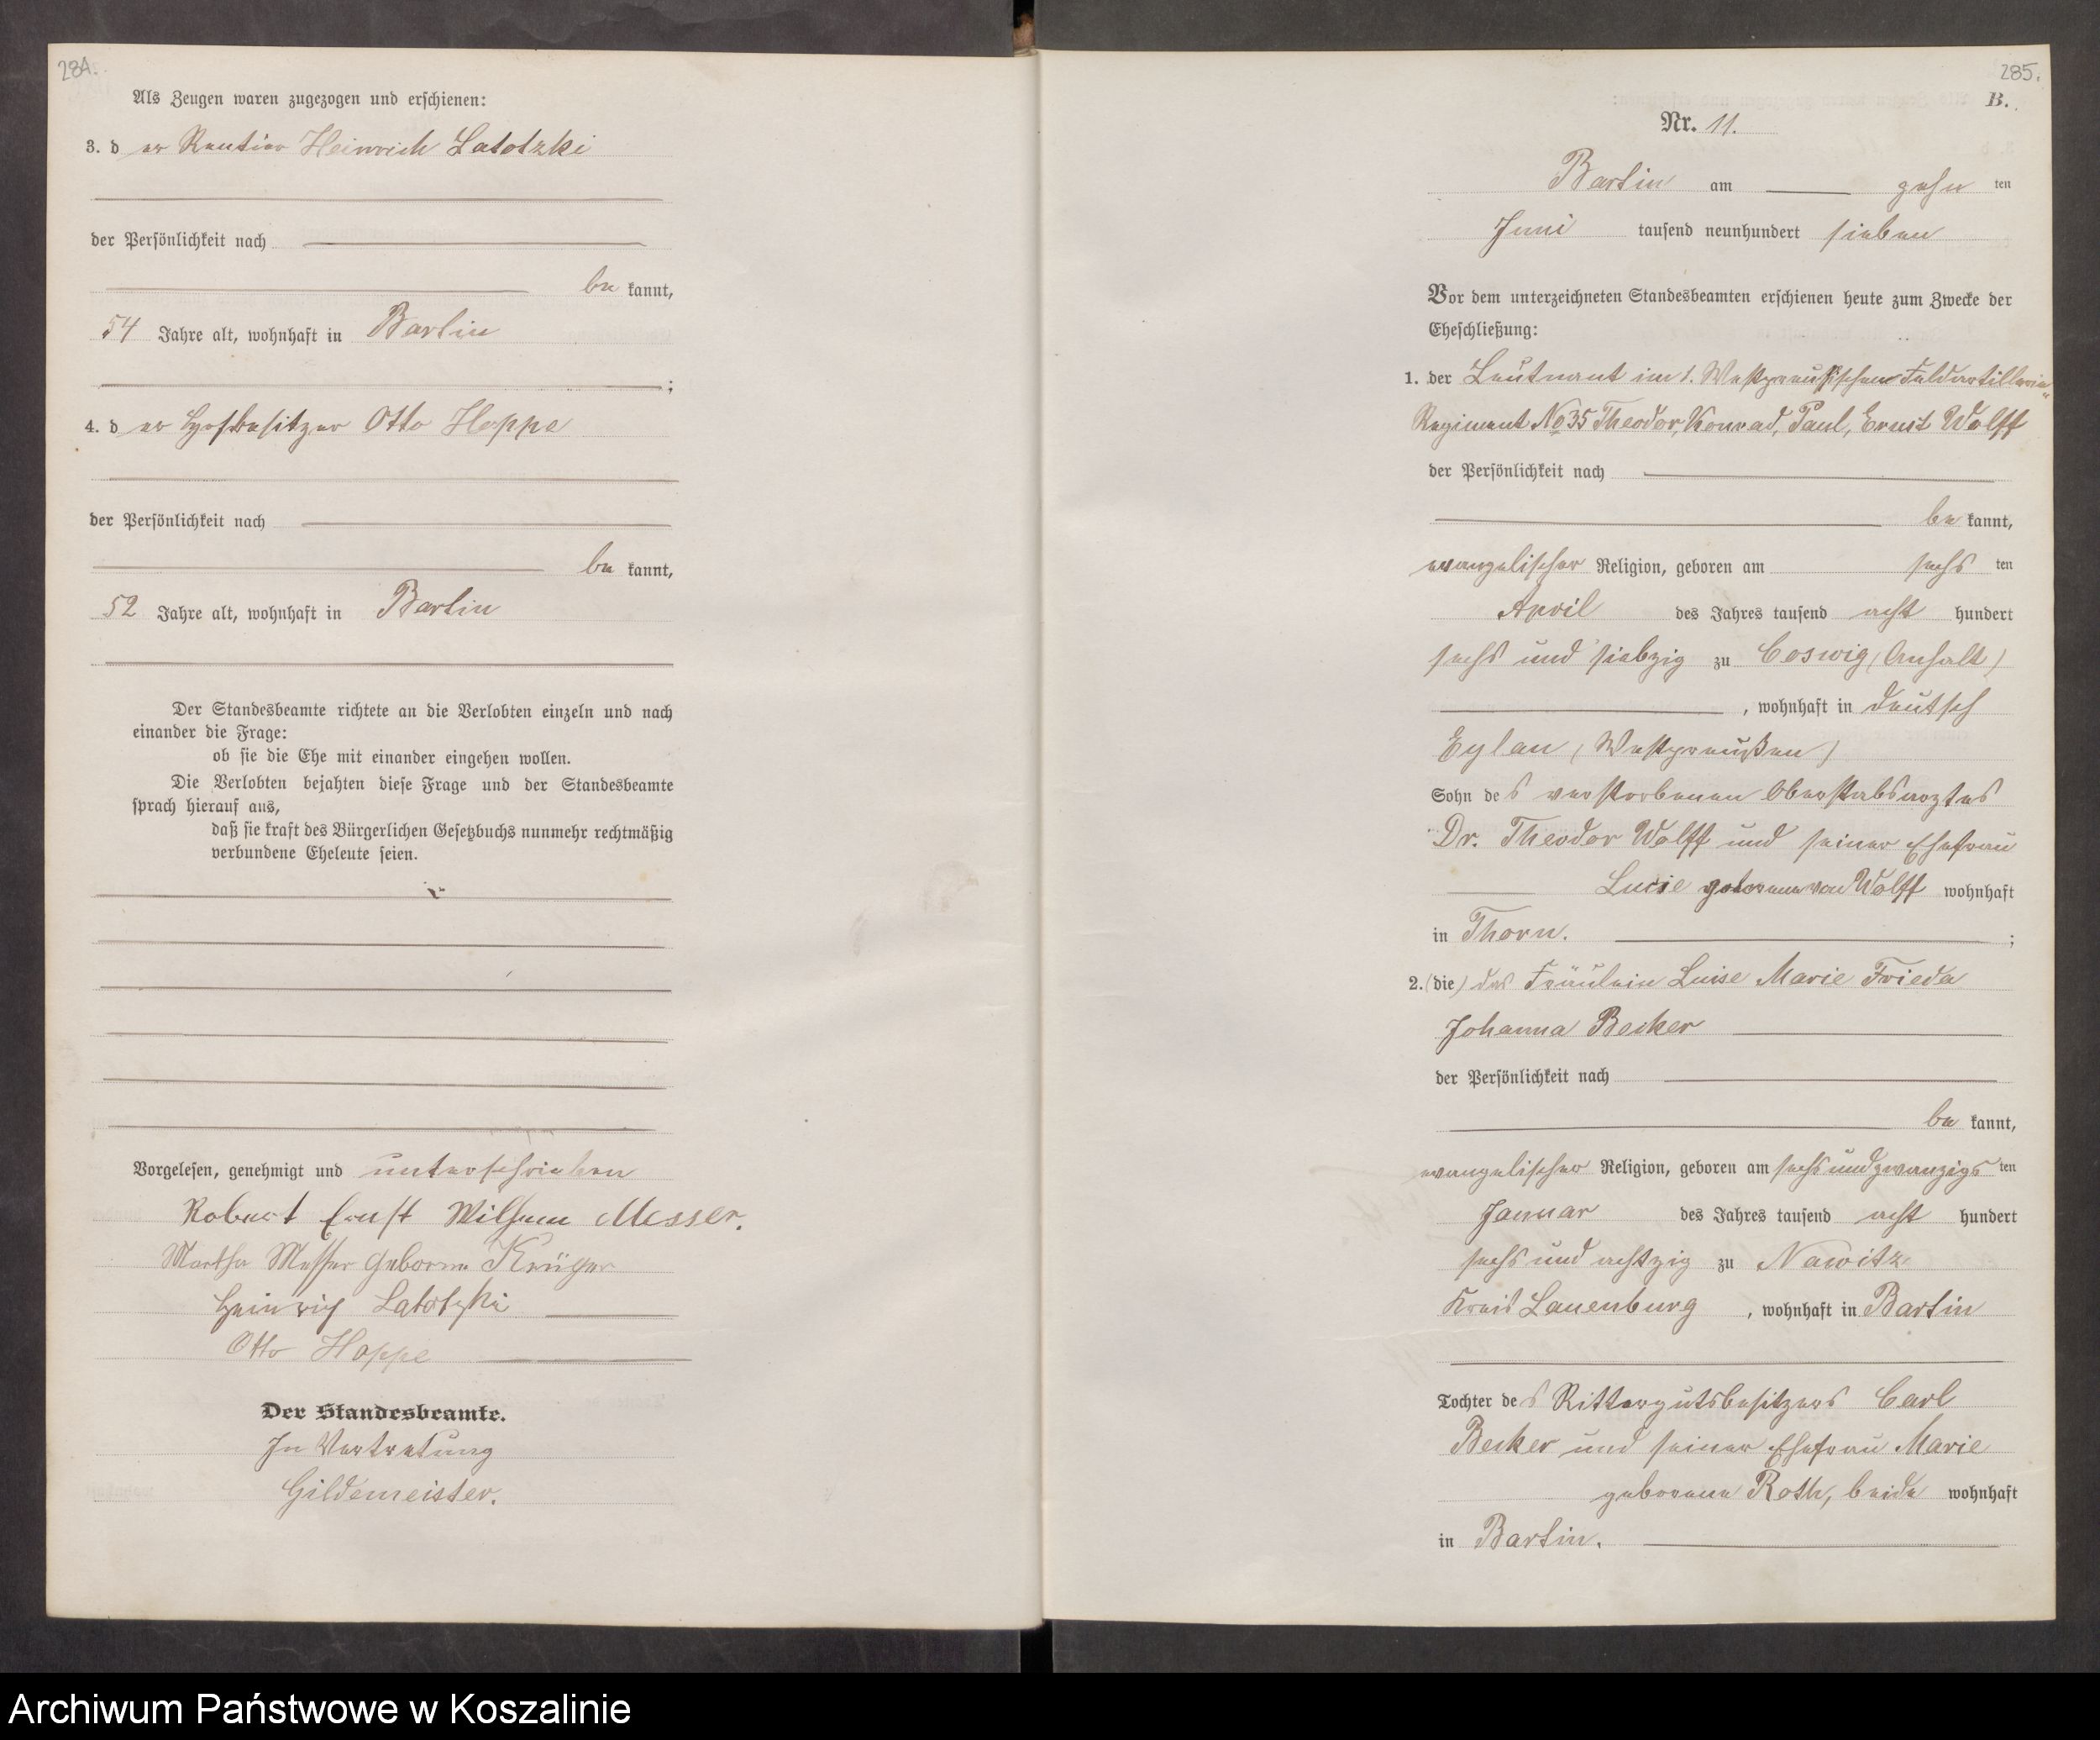 284.
Als Zeugen waren zugezogen und erschienen:
3. der Rentier Heinrich Latotzki
der Persönlichkeit nach
be kannt,
54 Jahre alt, wohnhaft in Bartin
;
4. der Hofbesitzer Otto Hoppe
der Persönlichkeit nach
be kannt,
52 Jahre alt, wohnhaft in Bartin
Der Standesbeamte richtete an die Verlobten einzeln und nach
einander die Frage:
ob sie die Ehe mit einander eingehen wollen.
Die Verlobten bejahten diese Frage und der Standesbeamte
sprach hierauf aus,
daß sie kraft des Bürgerlichen Gesetzbuchs nunmehr rechtmäßig
verbundene Eheleute seien.
Vorgelesen, genehmigt und unterschrieben
Robert Ernst Wilhelm Messer.
Martha Messer geborene Krüger
Heinrich Latotzki
Otto Hoppe
Der Standesbeamte.
In Vertretung
Gildemeister.
285.
B.
Nr. 11.
Bartin am zehn ten
Juni tausend neunhundert sieben
Vor dem unterzeichneten Standesbeamten erschienen heute zum Zwecke der
Eheschließung:
1. der Leutnant im 1. Westpreußischen Feldartillerie
Regiment No 35 Theodor, Konrad, Paul, Ernst Wolff
der Persönlichkeit nach
be kannt,
evangelischer Religion, geboren am sechs ten
April des Jahres tausend acht hundert
sechs und siebzig zu Coswig (Anhalt)
, wohnhaft in Deutsch
Eylau (Westpreußen)
Sohn des verstorbenen Oberstabsarztes
Dr. Theodor Wolff und seiner Ehefrau
Lucie geborene von Wolff wohnhaft
in Thorn. ;
2. (die) das Fräulein Luise Marie Frieda
Johanna Becker
der Persönlichkeit nach
be kannt,
evangelischer Religion, geboren am sechsundzwanzigs ten
Januar des Jahres tausend acht hundert
sechs und achtzig zu Nawitz
Kreis Lauenburg , wohnhaft in Bartin
Tochter des Rittergutsbesitzers Carl
Becker und seiner Ehefrau Marie
geborene Roth, beide wohnhaft
in Bartin.
Archiwum Państwowe w Koszalinie